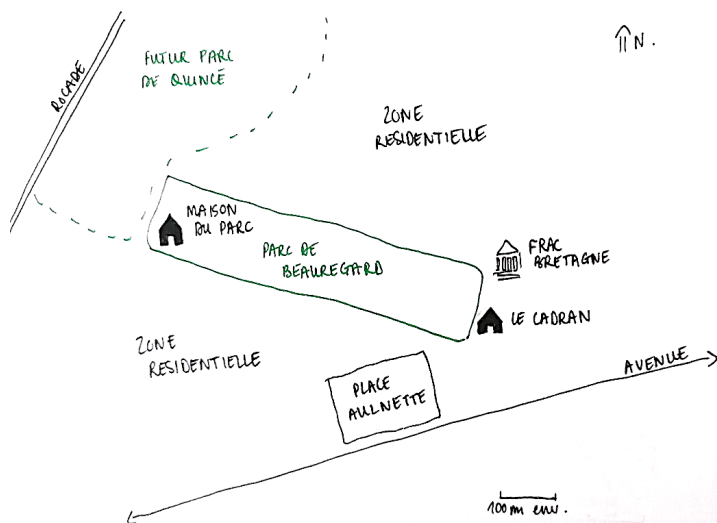 FUTUR PARC
DE QUINCÉ
N.
ROCADE
ZONE
RESIDENTIELLE
MAISON
DU PARC
PARC DE
BEAUREGARD
FRAC
BRETAGNE
LE CADRAN
ZONE
RESIDENTIELLE
AVENUE
PLACE
AULNETTE
100m env.